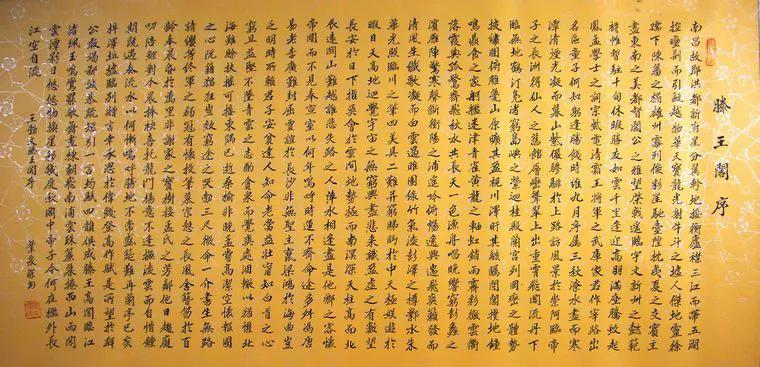 滕王閣序
南昌故郡洪都新府星分翼軫地接衡廬襟三江而帶五湖
控蠻荊而引甌越物華天寶龍光射牛斗之墟人傑地靈徐
孺下陳蕃之榻雄州霧列俊彩星馳臺隍枕夷夏之交賓主
盡東南之美都督閻公之雅望棨戟遙臨宇文新州之懿範
襜帷暫駐十旬休暇勝友如雲千里逢迎高朋滿座騰蛟起
鳳孟學士之詞宗紫電清霜王將軍之武庫家君作宰路出
名區童子何知躬逢勝餞時維九月序屬三秋潦水盡而寒
潭清煙光凝而暮山紫儼驂騑於上路訪風景於崇阿臨帝
子之長洲得仙人之舊館層巒聳翠上出重霄飛閣流丹下
臨無地鶴汀鳧渚窮島嶼之縈迴桂殿蘭宮列岡巒之體勢
披繡闥俯雕甍山原曠其盈視川澤盱其駭矚閭閻撲地鐘
鳴鼎食之家舸艦迷津青雀黃龍之軸虹銷雨霽彩徹雲衢
落霞與孤鶩齊飛秋水共長天一色漁舟唱晚響窮彭蠡之
濱雁陣驚寒聲斷衡陽之浦遙吟俯暢逸興遄飛爽籟發而
清風生纖歌凝而白雲遏睢園綠竹氣凌彭澤之樽鄴水朱
華光照臨川之筆四美具二難并窮睇眄於中天極娛遊於
暇日天高地迥覺宇宙之無窮興盡悲來識盈虛之有數望
長安於日下指吳會於雲間地勢極而南溟深天柱高而北
辰遠關山難越誰悲失路之人萍水相逢盡是他鄉之客懷
帝閽而不見奉宣室以何年嗚呼時運不齊命途多舛馮唐
易老李廣難封屈賈誼於長沙非無聖主竄梁鴻於海曲豈
乏明時所賴君子安貧達人知命老當益壯寧知白首之心
窮且益堅不墜青雲之志酌貪泉而覺爽處涸轍以猶懽北
海雖賒扶搖可接東隅已逝桑榆非晚孟嘗高潔空懷報國
之心阮籍猖狂豈效窮途之哭勃三尺微命一介書生無路
請纓等終軍之弱冠有懷投筆慕宗愨之長風舍簪笏於百
齡奉晨昏於萬里非謝家之寶樹接孟氏之芳鄰他日趨庭
叨陪鯉對今晨捧袂喜托龍門楊意不逢撫凌雲而自惜鍾
期既遇奏流水以何慚嗚呼勝地不常盛筵難再蘭亭已矣
梓澤丘墟臨別贈言幸承恩於偉餞登高作賦是所望於群
公敢竭鄙誠恭疏短引一言均賦四韻俱成滕王高閣臨江
渚佩玉鳴鸞罷歌舞畫棟朝飛南浦雲珠簾暮捲西山雨閒
雲潭影日悠悠物換星移幾度秋閣中帝子今何在檻外長
江空自流
王勃文滕王閣序